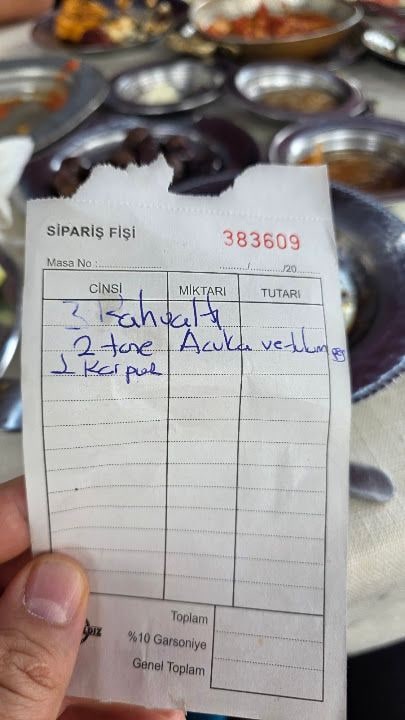 SİPARİŞ FİŞİ
383609
Masa No :............ ......../........./20......
CİNSİ MİKTARI TUTARI
3 Kahvaltı
2 tane Acuka ve
1 Karpuz
Toplam
%10 Garsoniye
Genel Toplam